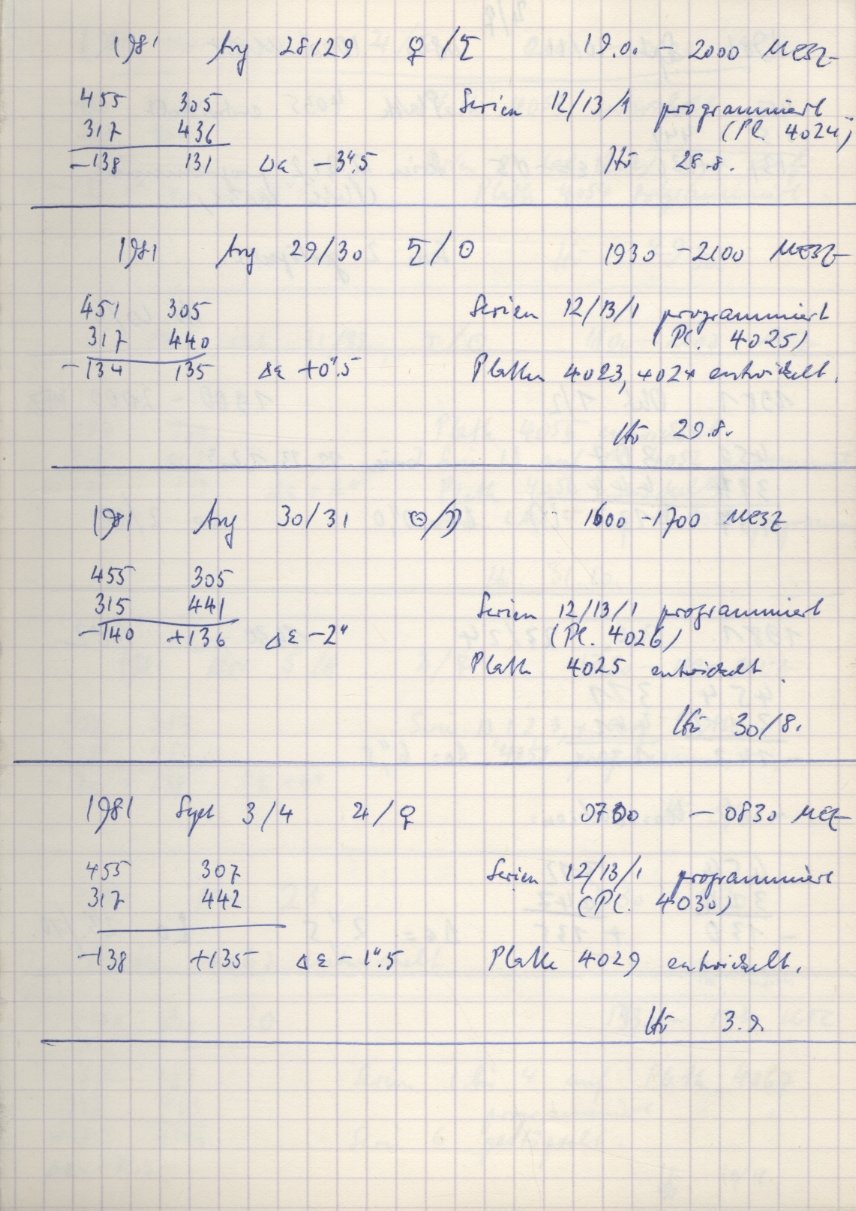 1981 Aug 28/29 ♀/♄ 19.00 – 2000 MESZ
455 305 Serien 12/13/1 programmiert
317 436 (Pl. 4024)
–138 131 Δε –3".5 28.8.
1981 Aug 29/30 ♄/☉ 1930 – 2100 MESZ
451 305 Serien 12/13/1 programmiert
317 440 (Pl. 4025)
–134 135 Δε +0".5 Platten 4023, 4024 entwickelt.
29.8.
1981 Aug 30/31 ☉/☽ 1600 – 1700 MESZ
455 305
315 441 Serien 12/13/1 programmiert
–140 +136 Δε –2" (Pl. 4026)
Platte 4025 entwickelt.
30/8.
1981 Sept 3/4 ♃/♀ 0730 – 0830 MEZ
455 307 Serien 12/13/1 programmiert
317 442 (Pl. 4030)
–138 +135 Δε –1".5 Platte 4029 entwickelt.
3.9.